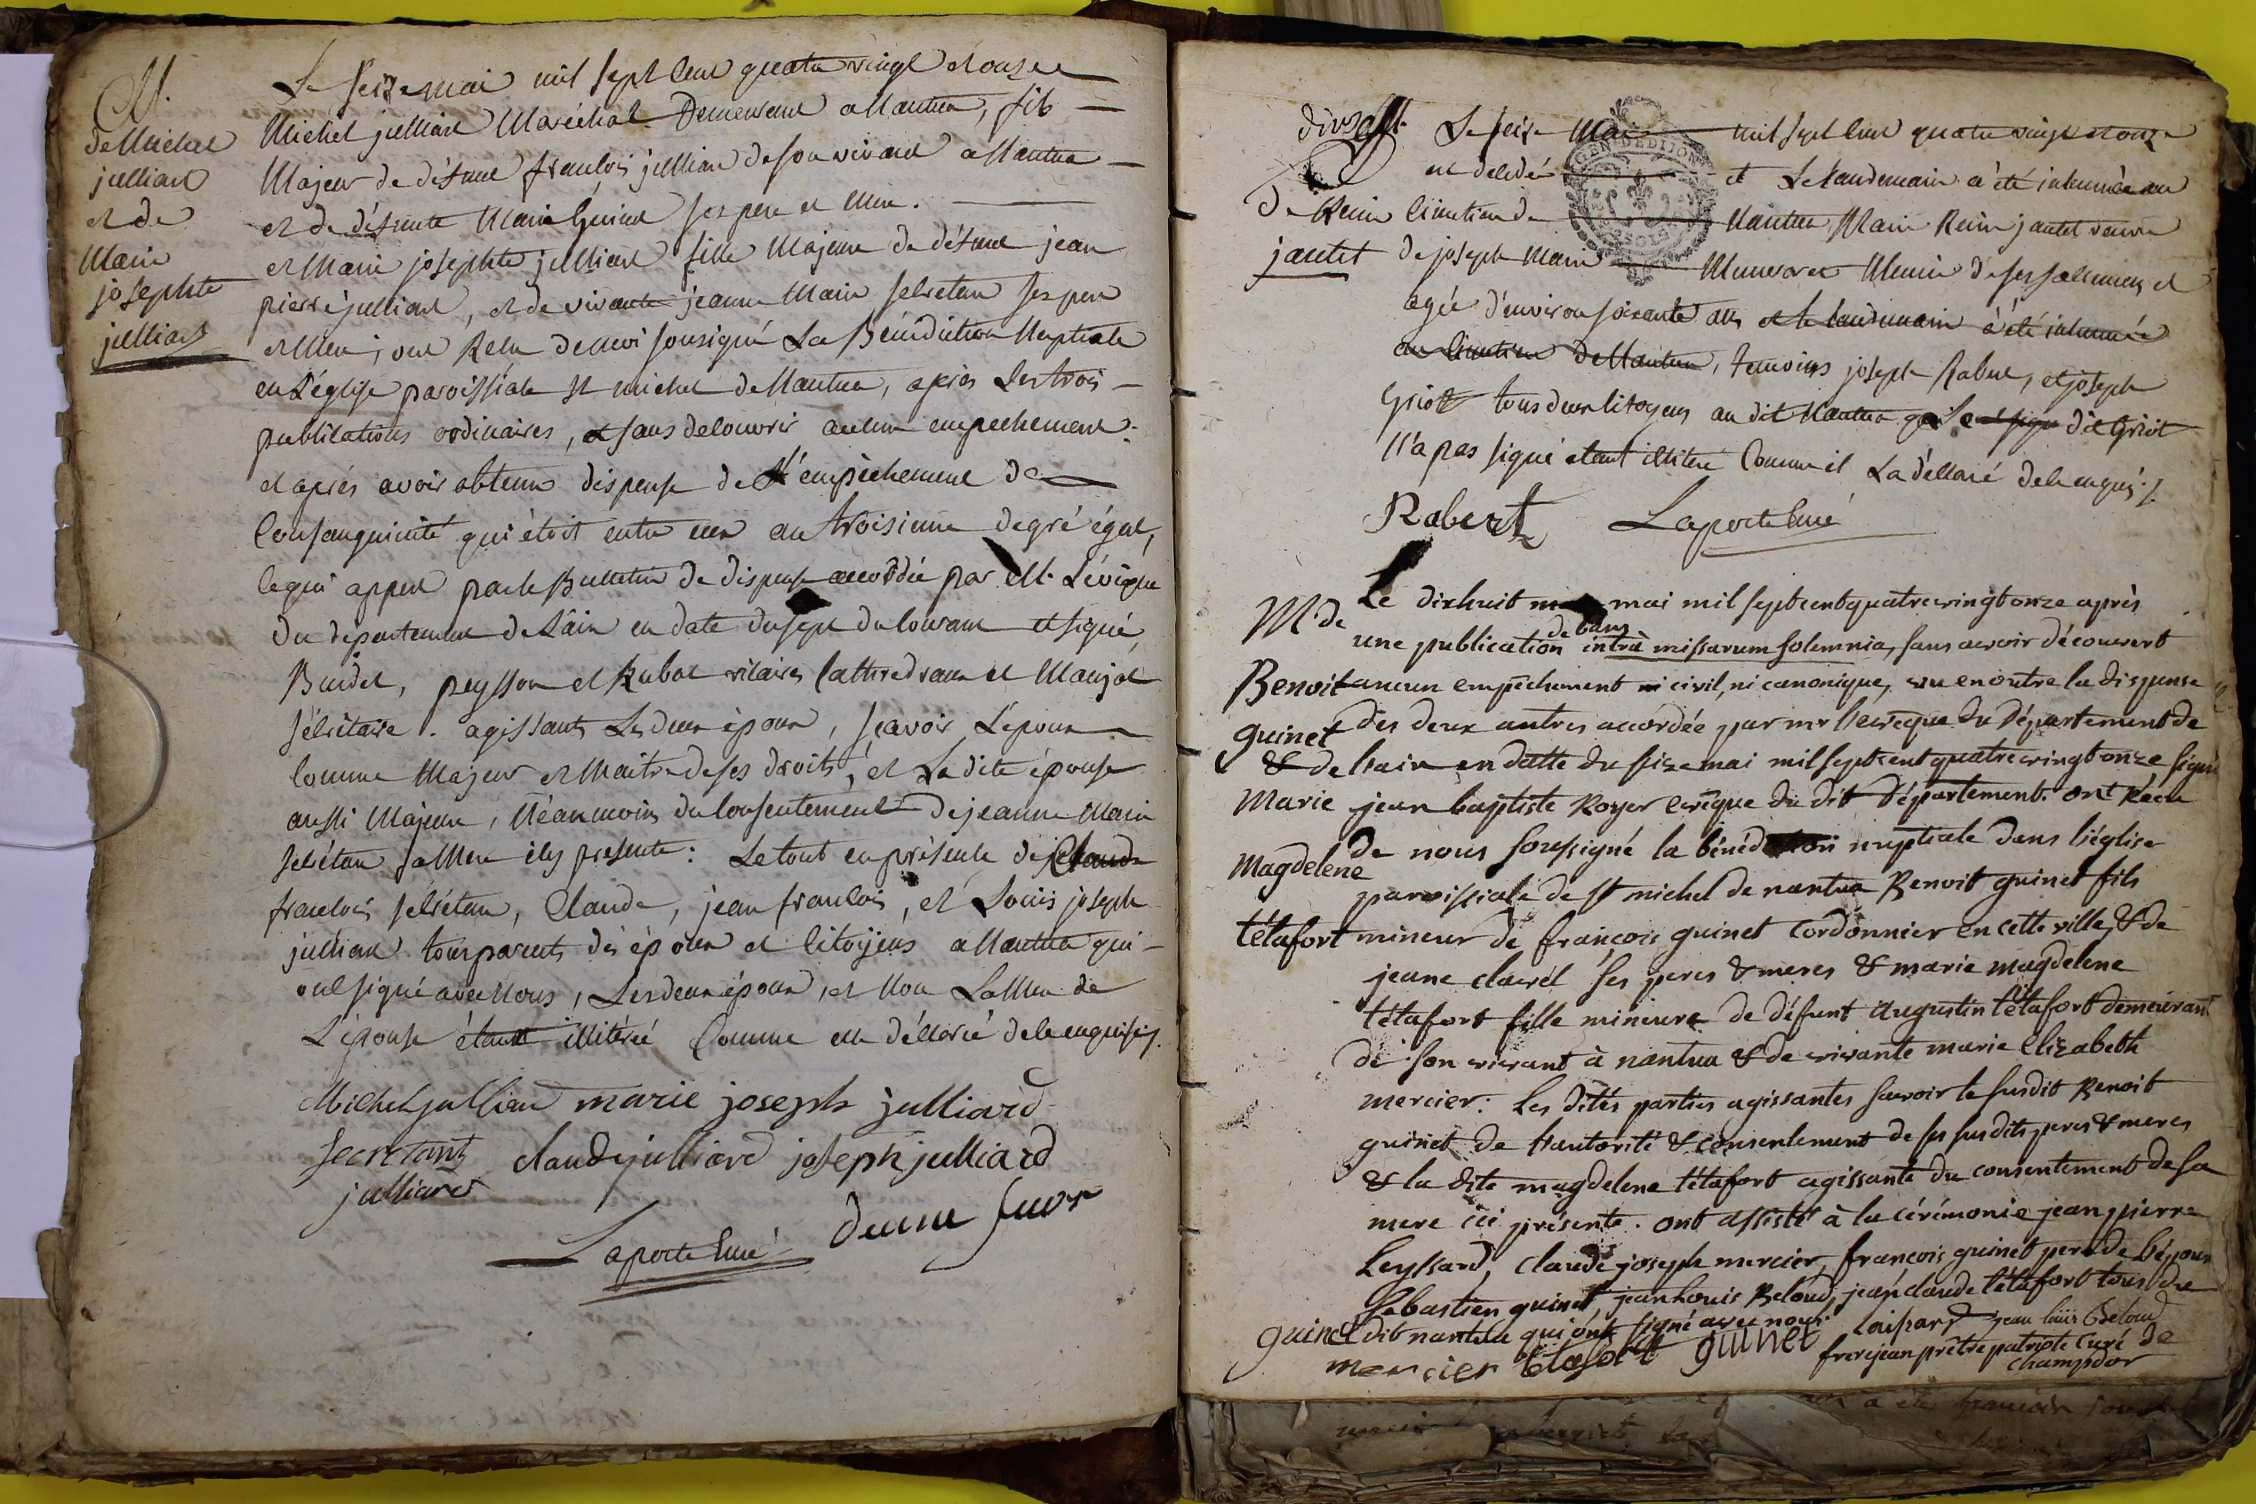 M.
de Michel
julliard
et de
Marie
josephte
julliard
Le seize mai mil sept cent quatre vingt et onze
Michel julliard Maréchal Demeurant a Nantua, fils
Majeur de défunt francois julliard de son vivant a Nantua
et de défunte Marie ses pere et Mere.
et Marie josephte julliard fille Majeure de défunt jean
pierre julliard, et de vivante jeanne Marie secretan ses pere
et Mere, ont Recu de moi soussigné La Bénédiction Nuptiale
en L'église paroissiale st michel de Nantua, après Les trois
publications ordinaires, et sans decouvrir aucun empechement.
et après avoir obtenu dispense de L'empêchement de
Consanguinité qui étoit entre eux au troisieme degré égal,
ce qui appert par le Bulletin de dispense accordée par M. L'évêque
Du departement de L'ain en date du sept du courant et signé,
Burdet, peysson et Rubat vicaires Cathedraux et Maujot
sécrétaire. agissants Les deux époux, scavoir L'époux
comme Majeur et Maitre de ses droits, et La dite épouse
aussi Majeure, Néanmoins du consentement de jeanne Marie
secrétan sa Mere icy presente: Le tout en présence de Claude
francois secrétan, Claude, jean francois, et Louis joseph
julliard tous parents des époux et citoyens a Nantua qui
ont signé avec Nous, Les deux époux, et Non La Mere de
L'épouse étant illitérée Comme elle a déclaré de ce enquise.
Michel julliard marie joseph julliard
secretant claude julliard joseph julliard
julliard
Laporte Curé
div
De Reine
jantet
GEN. DE DIJON
Le seize Mai mil sept cent quatre vingt et onze
est decedée et Le Landemain a été inhumée au
Cimetiere de Nantua Marie Reine jantet veuve
de joseph Marie Munie de ses sacremens et
agée d'environ soixante ans et le landemain a été inhumée
au Cimetiere de Nantua, temoins joseph Robert, et joseph
Griot tous deux citoyens au dit Nantua Le dit Griot
N'a pas signé etant illitéré Comme il La déclaré de ce enquis./.
Robert Laporte Curé
M de
Benoit
guinet
&
Marie
Magdelene
tétafort
Le dixhuit mai mil septcent quatre vingt onze après
de bans
une publication intrà missarum solemnia, sans avoir découvert
aucun empêchement ni civil, ni canonique, vu en outre la dispense
des deux autres accordée par mr l'evêque du Département de
de l'ain en datte du seize mai mil septcent quatre vingt onze signé
jean baptiste Royer evêque du dit Département. ont Récu
de nous soussigné la bénédiction nuptiale dans l'église
paroissiale de st michel de nantua Benoit guinet fils
mineur de françois guinet Cordonnier en cette ville, & de
jeane clavel ses peres & meres & marie magdelene
tétafort fille mineure de défunt augustin tétafort demeurant
de son vivant à nantua & de vivante marie Elizabeth
mercier: Les dites parties agissantes savoir le susdit Benoit
guinet de l'autorité & consentement de ses susdits peres & meres
& la dite magdelene tétafort agissante du consentement de sa
mere ici présente. ont assisté à la cérémonie jean pierre
Leyssard, claude joseph mercier, françois guinet pere de l'époux
Sebastien guinet, jean Louis Beloud, jean claude tétafort tous du
dit nantua qui ont signé avec nous.
guinet mercier tétafort guinet jean louis Beloud
frerejean prêtre patriote Curé de
champdor